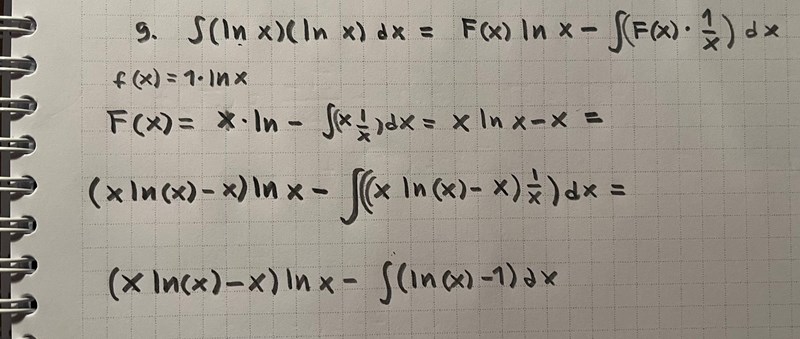 9. ∫(ln x)(ln x) dx = F(x) ln x - ∫(F(x) · 1/x) dx
f(x) = 1 · ln x
F(x) = x · ln - ∫(x 1/x) dx = x ln x - x =
(x ln(x) - x) ln x - ∫((x ln(x) - x) 1/x) dx =
(x ln(x) - x) ln x - ∫(ln(x) - 1) dx